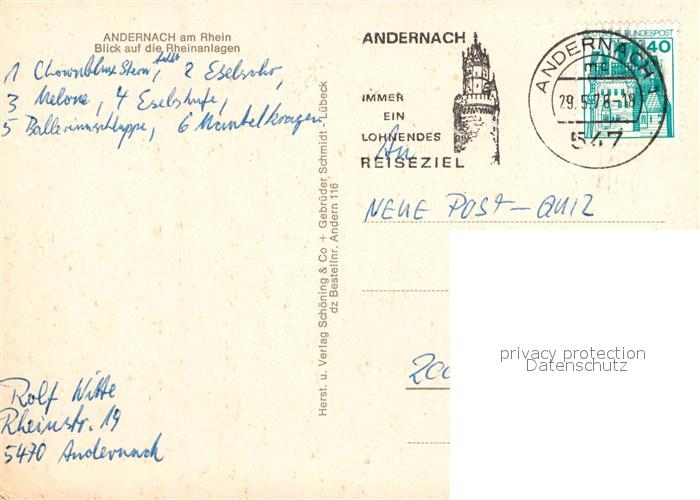 ANDERNACH am Rhein
Blick auf die Rheinanlagen
1 Stern, fehlt, 2 Eselsohr,
3 Melone, 4 Eselshufe,
5 Ballerinaschlappe, 6 Mantelkragen
Rolf Witte
Rheinstr. 19
5470 Andernach
Herst. u. Verlag Schöning & Co + Gebrüder Schmidt - Lübeck
dz Bestellnr. Andern 116
ANDERNACH
IMMER
EIN
LOHNENDES
REISEZIEL
ANDERNACH 1
29.5.78-18
547
DEUTSCHE BUNDESPOST
40
An
NEUE POST-QUIZ
200
privacy protection
Datenschutz